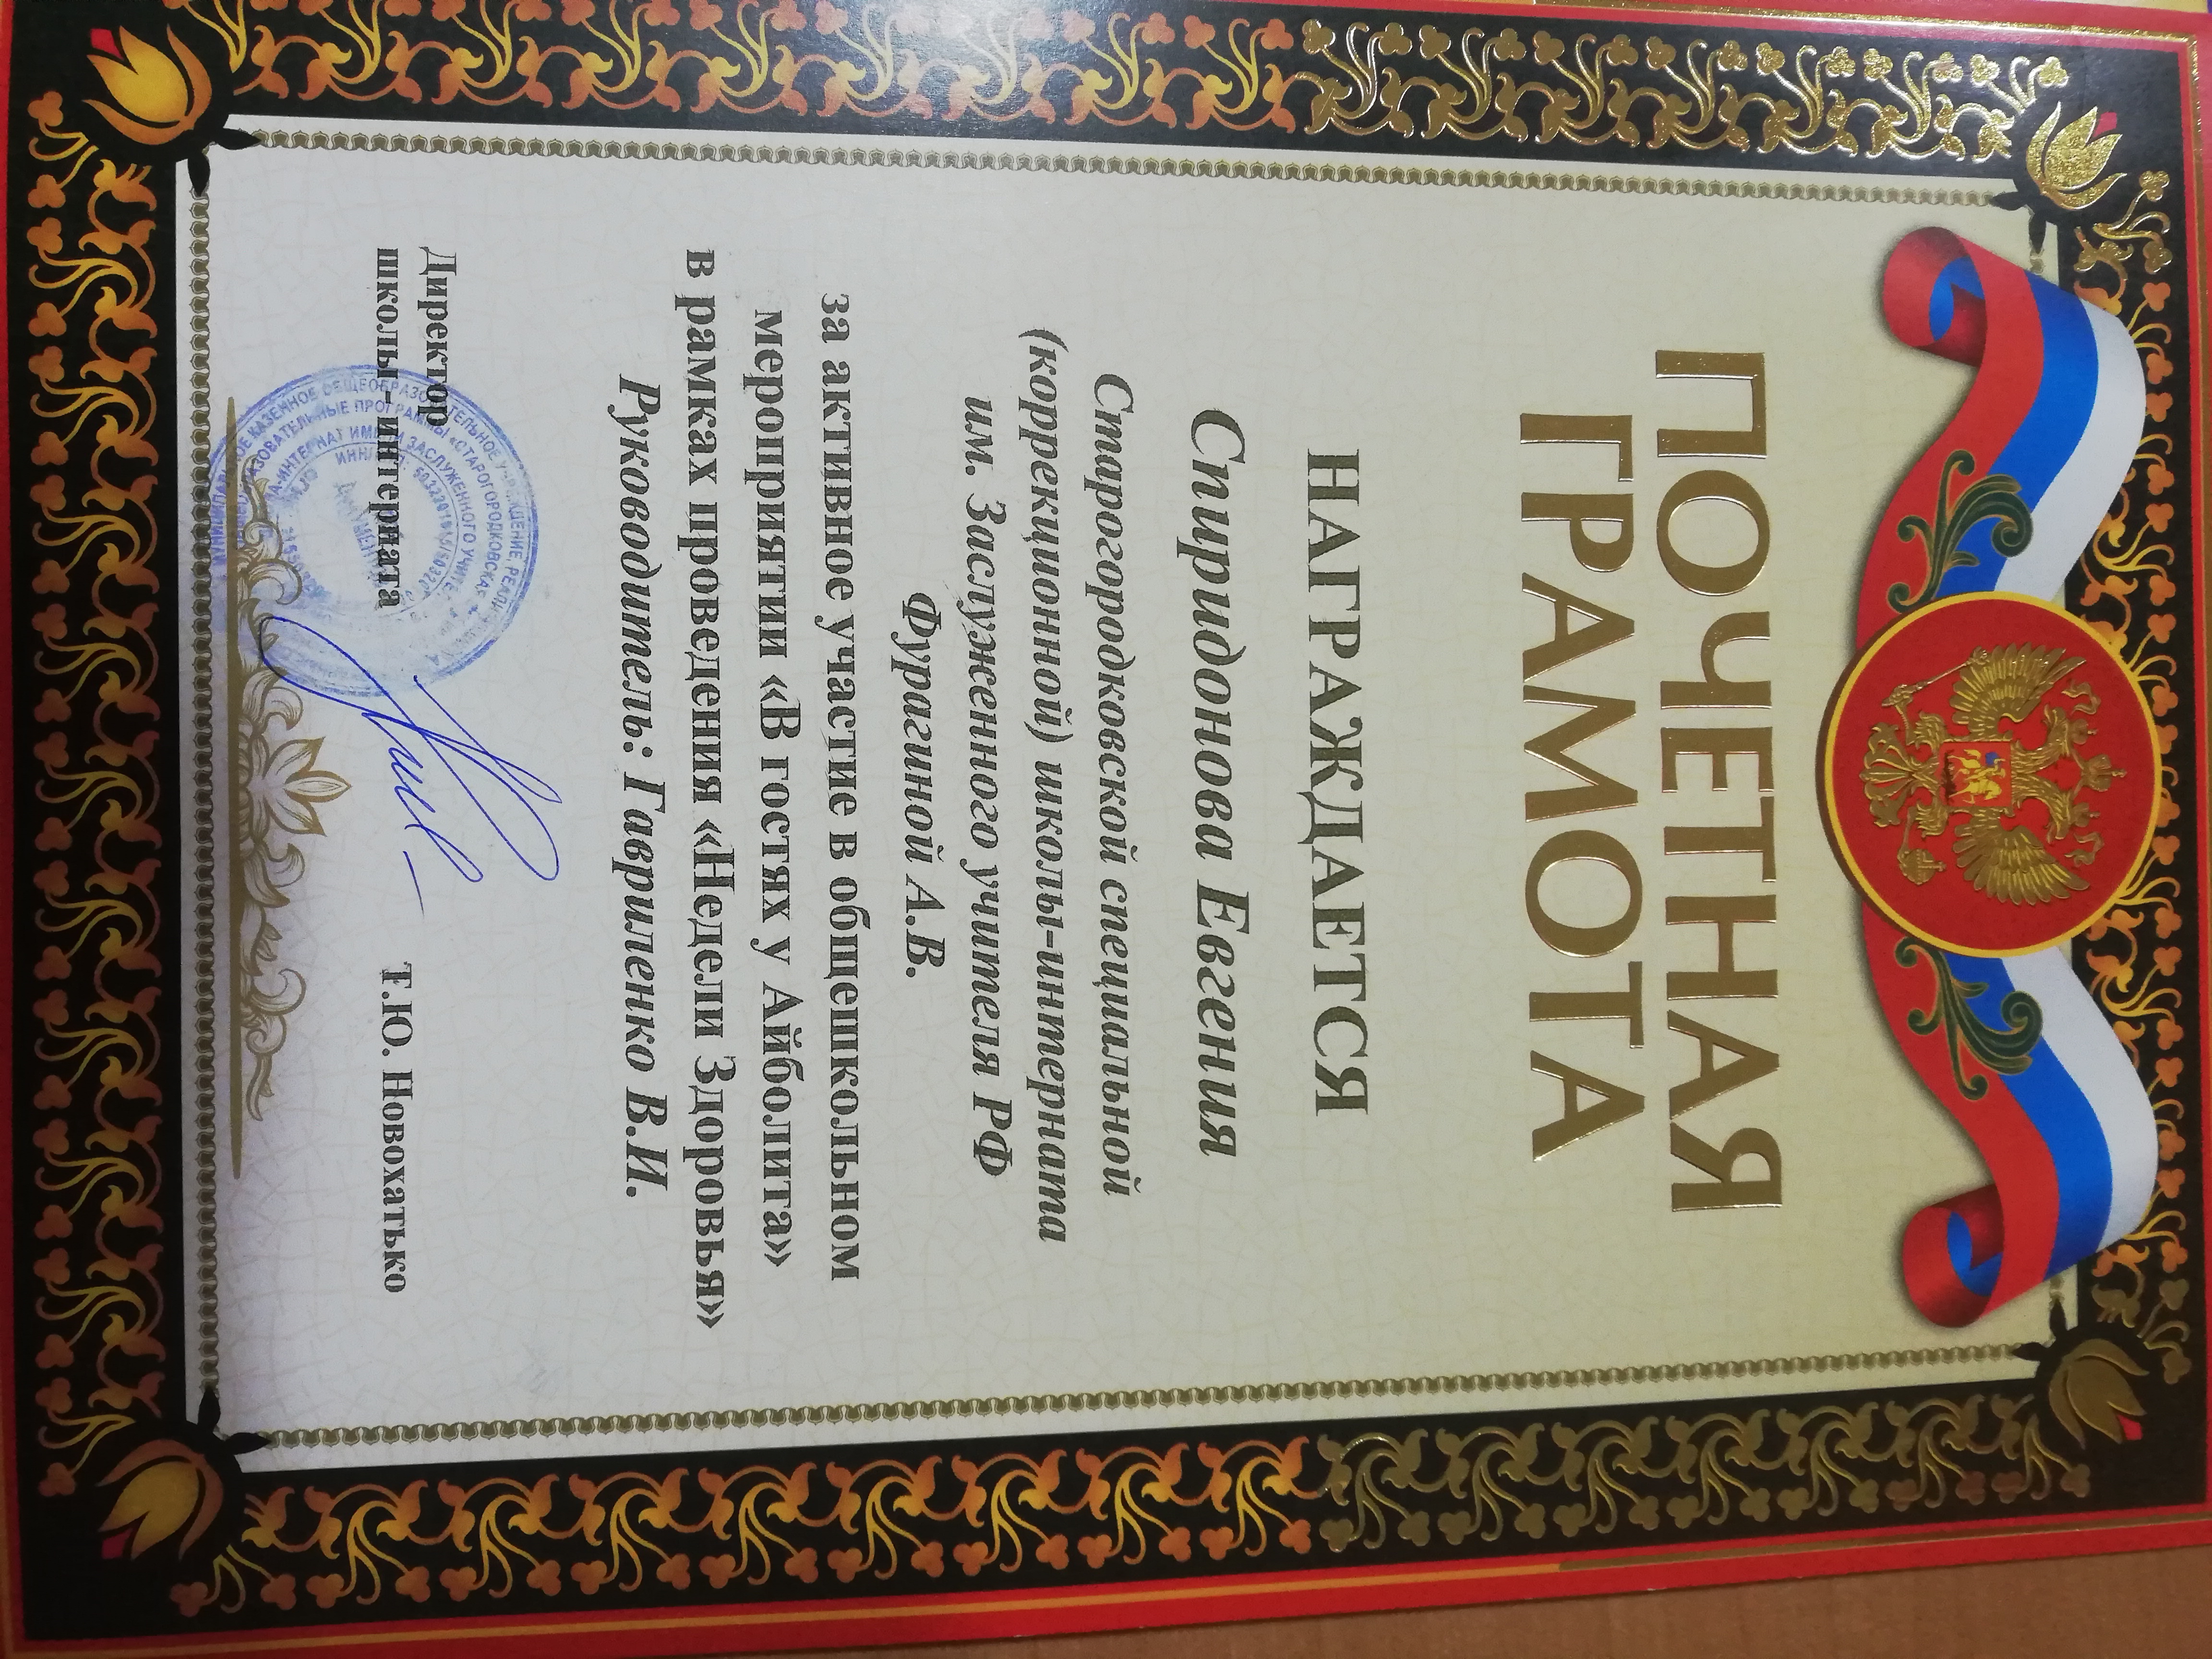 ПОЧЕТНАЯ
ГРАМОТА
НАГРАЖДАЕТСЯ
Спиридонова Евгения
Старогородковской специальной
(коррекционной) школы-интерната
им. Заслуженного учителя РФ
Фурагиной А.В.
за активное участие в общешкольном
мероприятии «В гостях у Айболита»
в рамках проведения «Недели Здоровья»
Руководитель: Гавриленко В.И.
Директор
школы-интерната
Т.Ю. Новохатько
КАЗЕННОЕ ОБЩЕОБРАЗОВАТЕЛЬНОЕ УЧРЕЖДЕНИЕ
ПРОГРАММЫ «СТАРОГОРОДКОВСКАЯ
ИМЕНИ ЗАСЛУЖЕННОГО